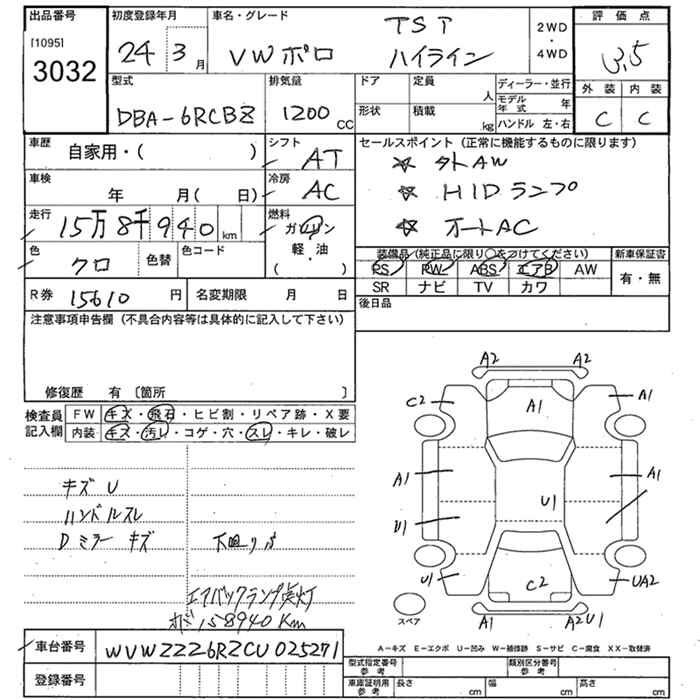 出品番号 初度登録年月 車名・グレード 評価点
[1095] 24 3月 VWポロ TSI ハイライン 2WD・4WD 3.5
3032
外装 内装
C C
型式 排気量 ドア 定員 ディーラー・並行
DBA-6RCBZ 1200CC 人 モデル年式 年
形状 積載 kg ハンドル 左・右
車歴 シフト セールスポイント (正常に機能するものに限ります)
自家用・( ) AT ☆ 外AW
車検 冷房
年 月( 日) AC ☆ HIDランプ
走行 燃料
15万8千940km ガソリン ☆ オートAC
軽・油
( )
色 色替 色コード
クロ
装備品(純正品に限り○をつけてください) 新車保証書
PS PW ABS エアB AW 有・無
SR ナビ TV カワ
R券 15610円 名変期限 月 日
後日品
注意事項申告欄(不具合内容等は具体的に記入して下さい)
修復歴 有〔箇所 〕
検査員記入欄 FW キズ・飛石・ヒビ割・リペア跡・X要
内装 キズ・汚レ・コゲ・穴・スレ・キレ・破レ
キズ U
ハンドルスレ
Dミラーキズ 下廻り
エアバックランプ点灯
158940Km
A2 A2
C2 A1 A1
A1 A1
U1 U1
U1 C2 UA2
A1 A2U1
スペア
A-キズ E-エクボ U-凹み W-補修跡 S-サビ C-腐食 XX-取替済
車台番号 WVWZZZ6RZCU025271
登録番号
型式指定番号参考 類別区分番号参考
車庫証明用参考 長さ cm 幅 cm 高さ cm